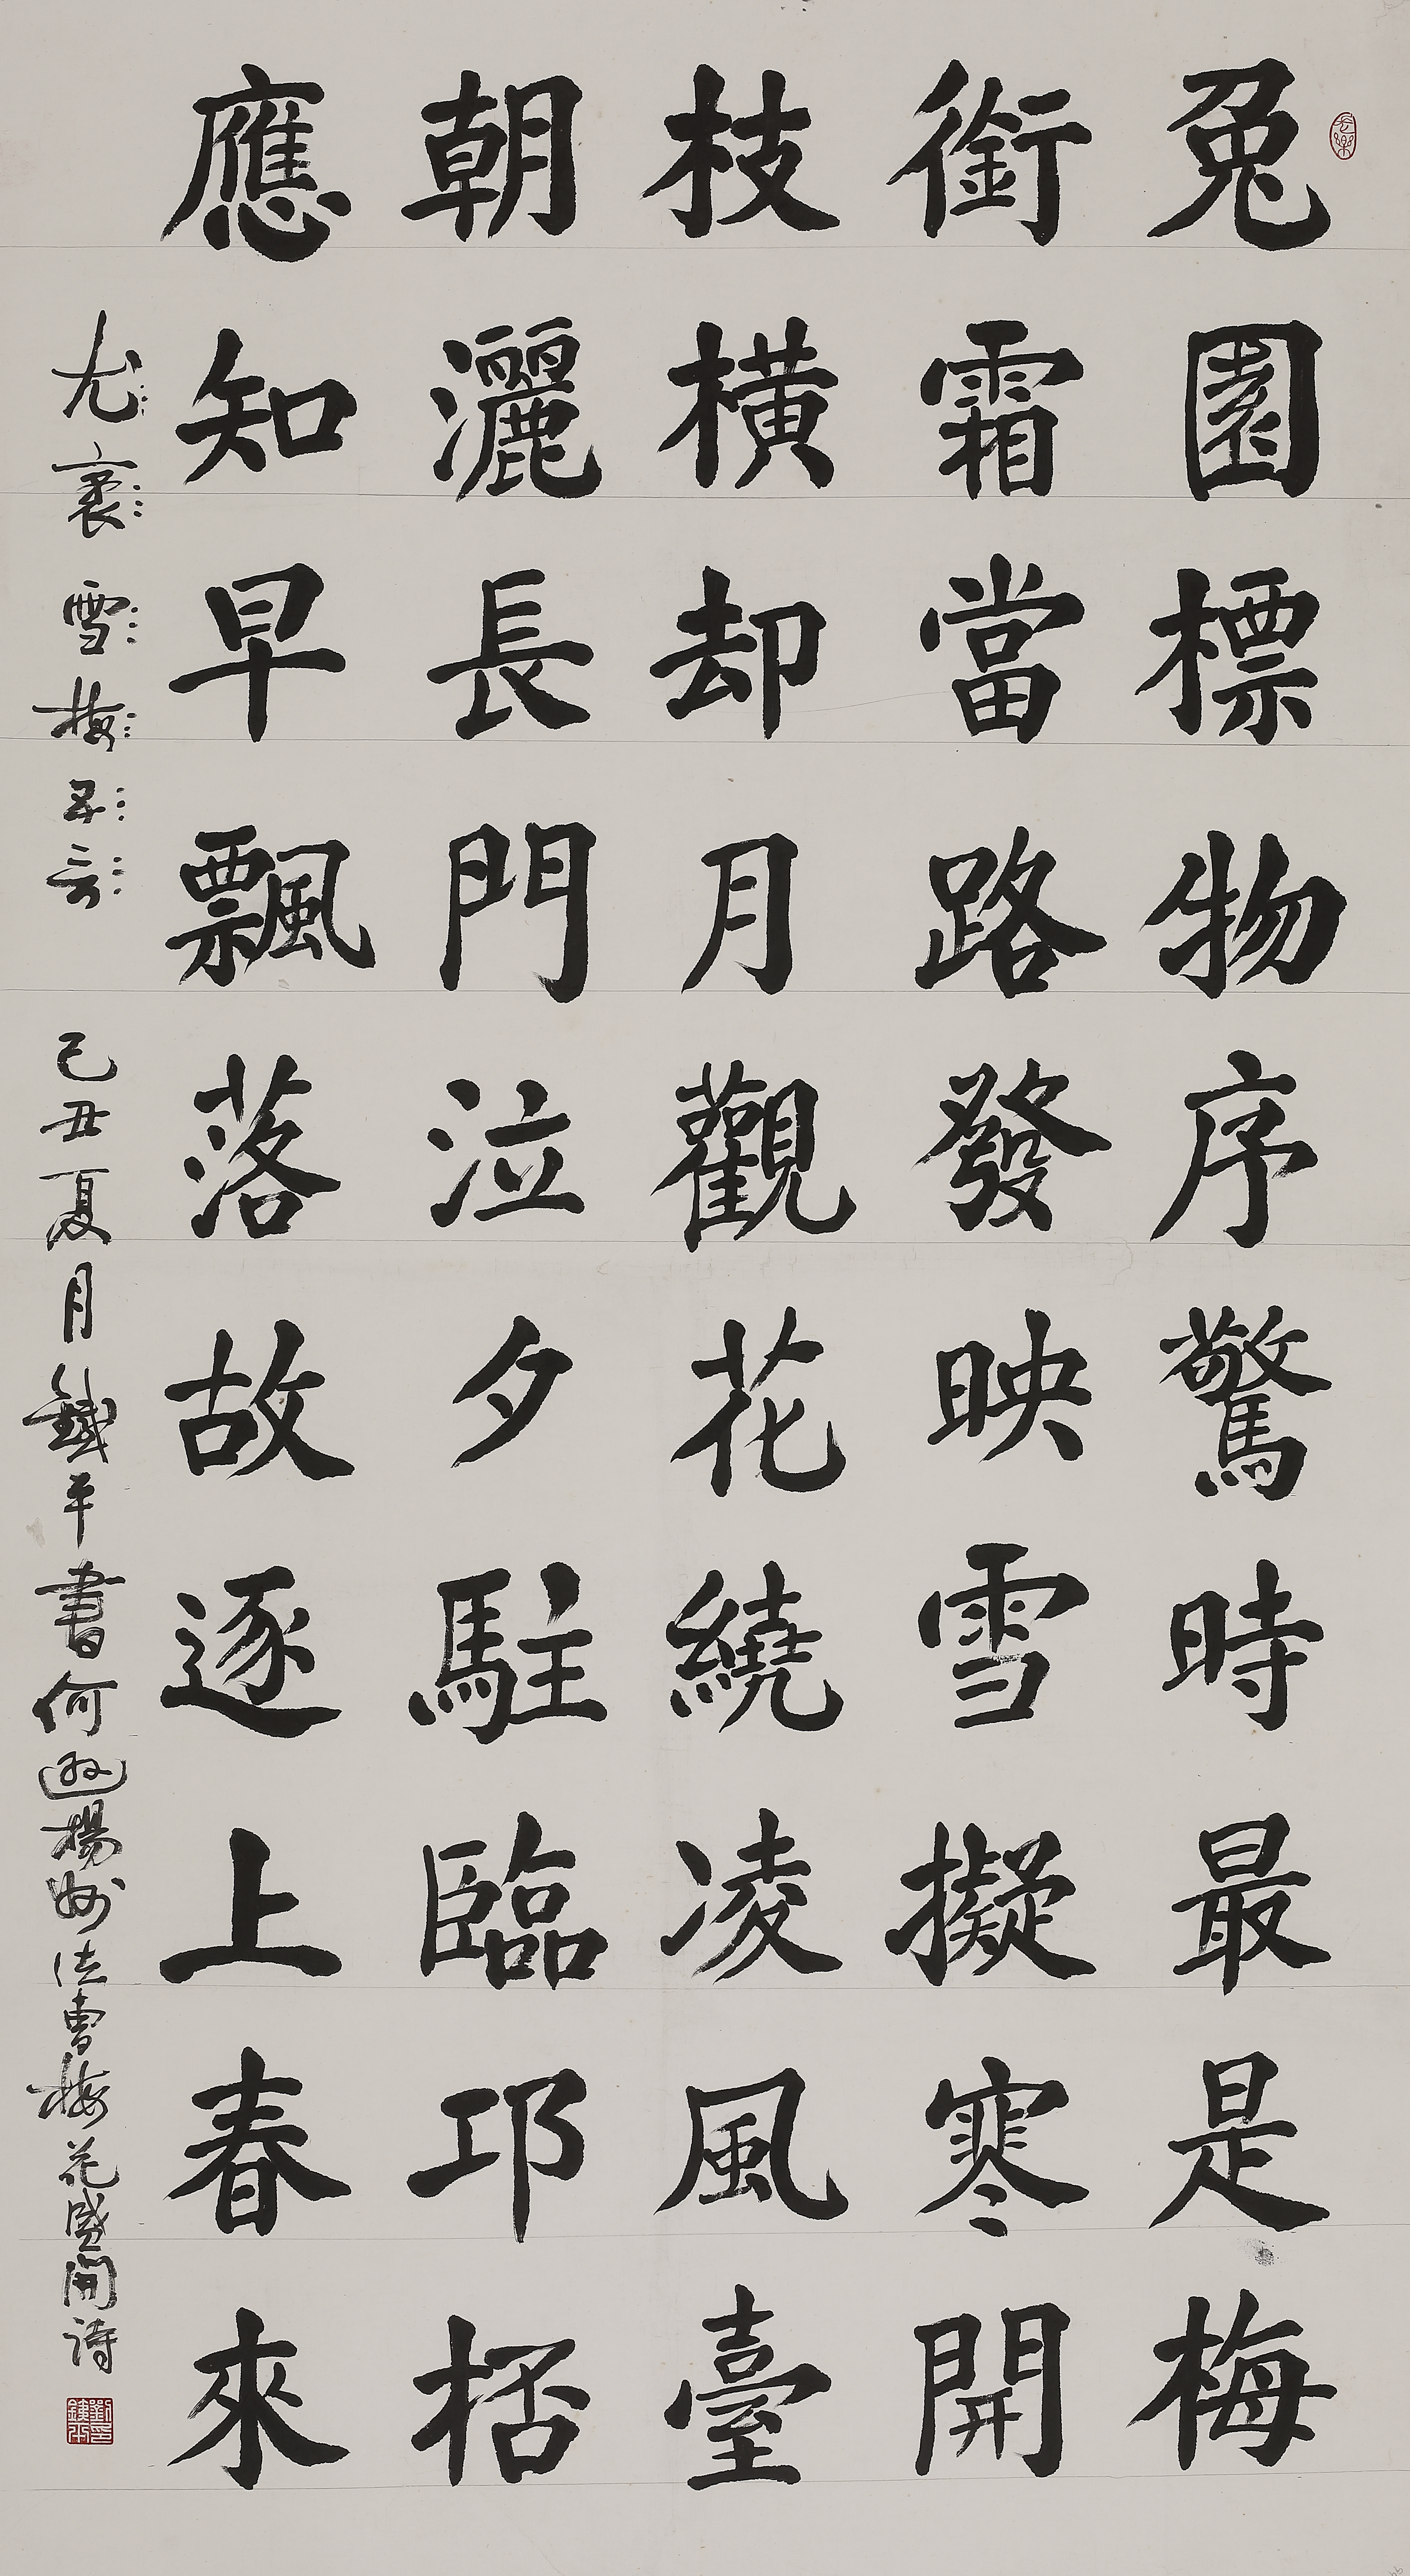 兔園標物序驚時最是梅
銜霜當路發映雪擬寒開
枝橫却月觀花繞凌風臺
朝灑長門泣夕駐臨邛桮
應知早飄落故逐上春來
尤袤雪梅 己丑夏月鐵平書何遜揚州法曹梅花盛開詩